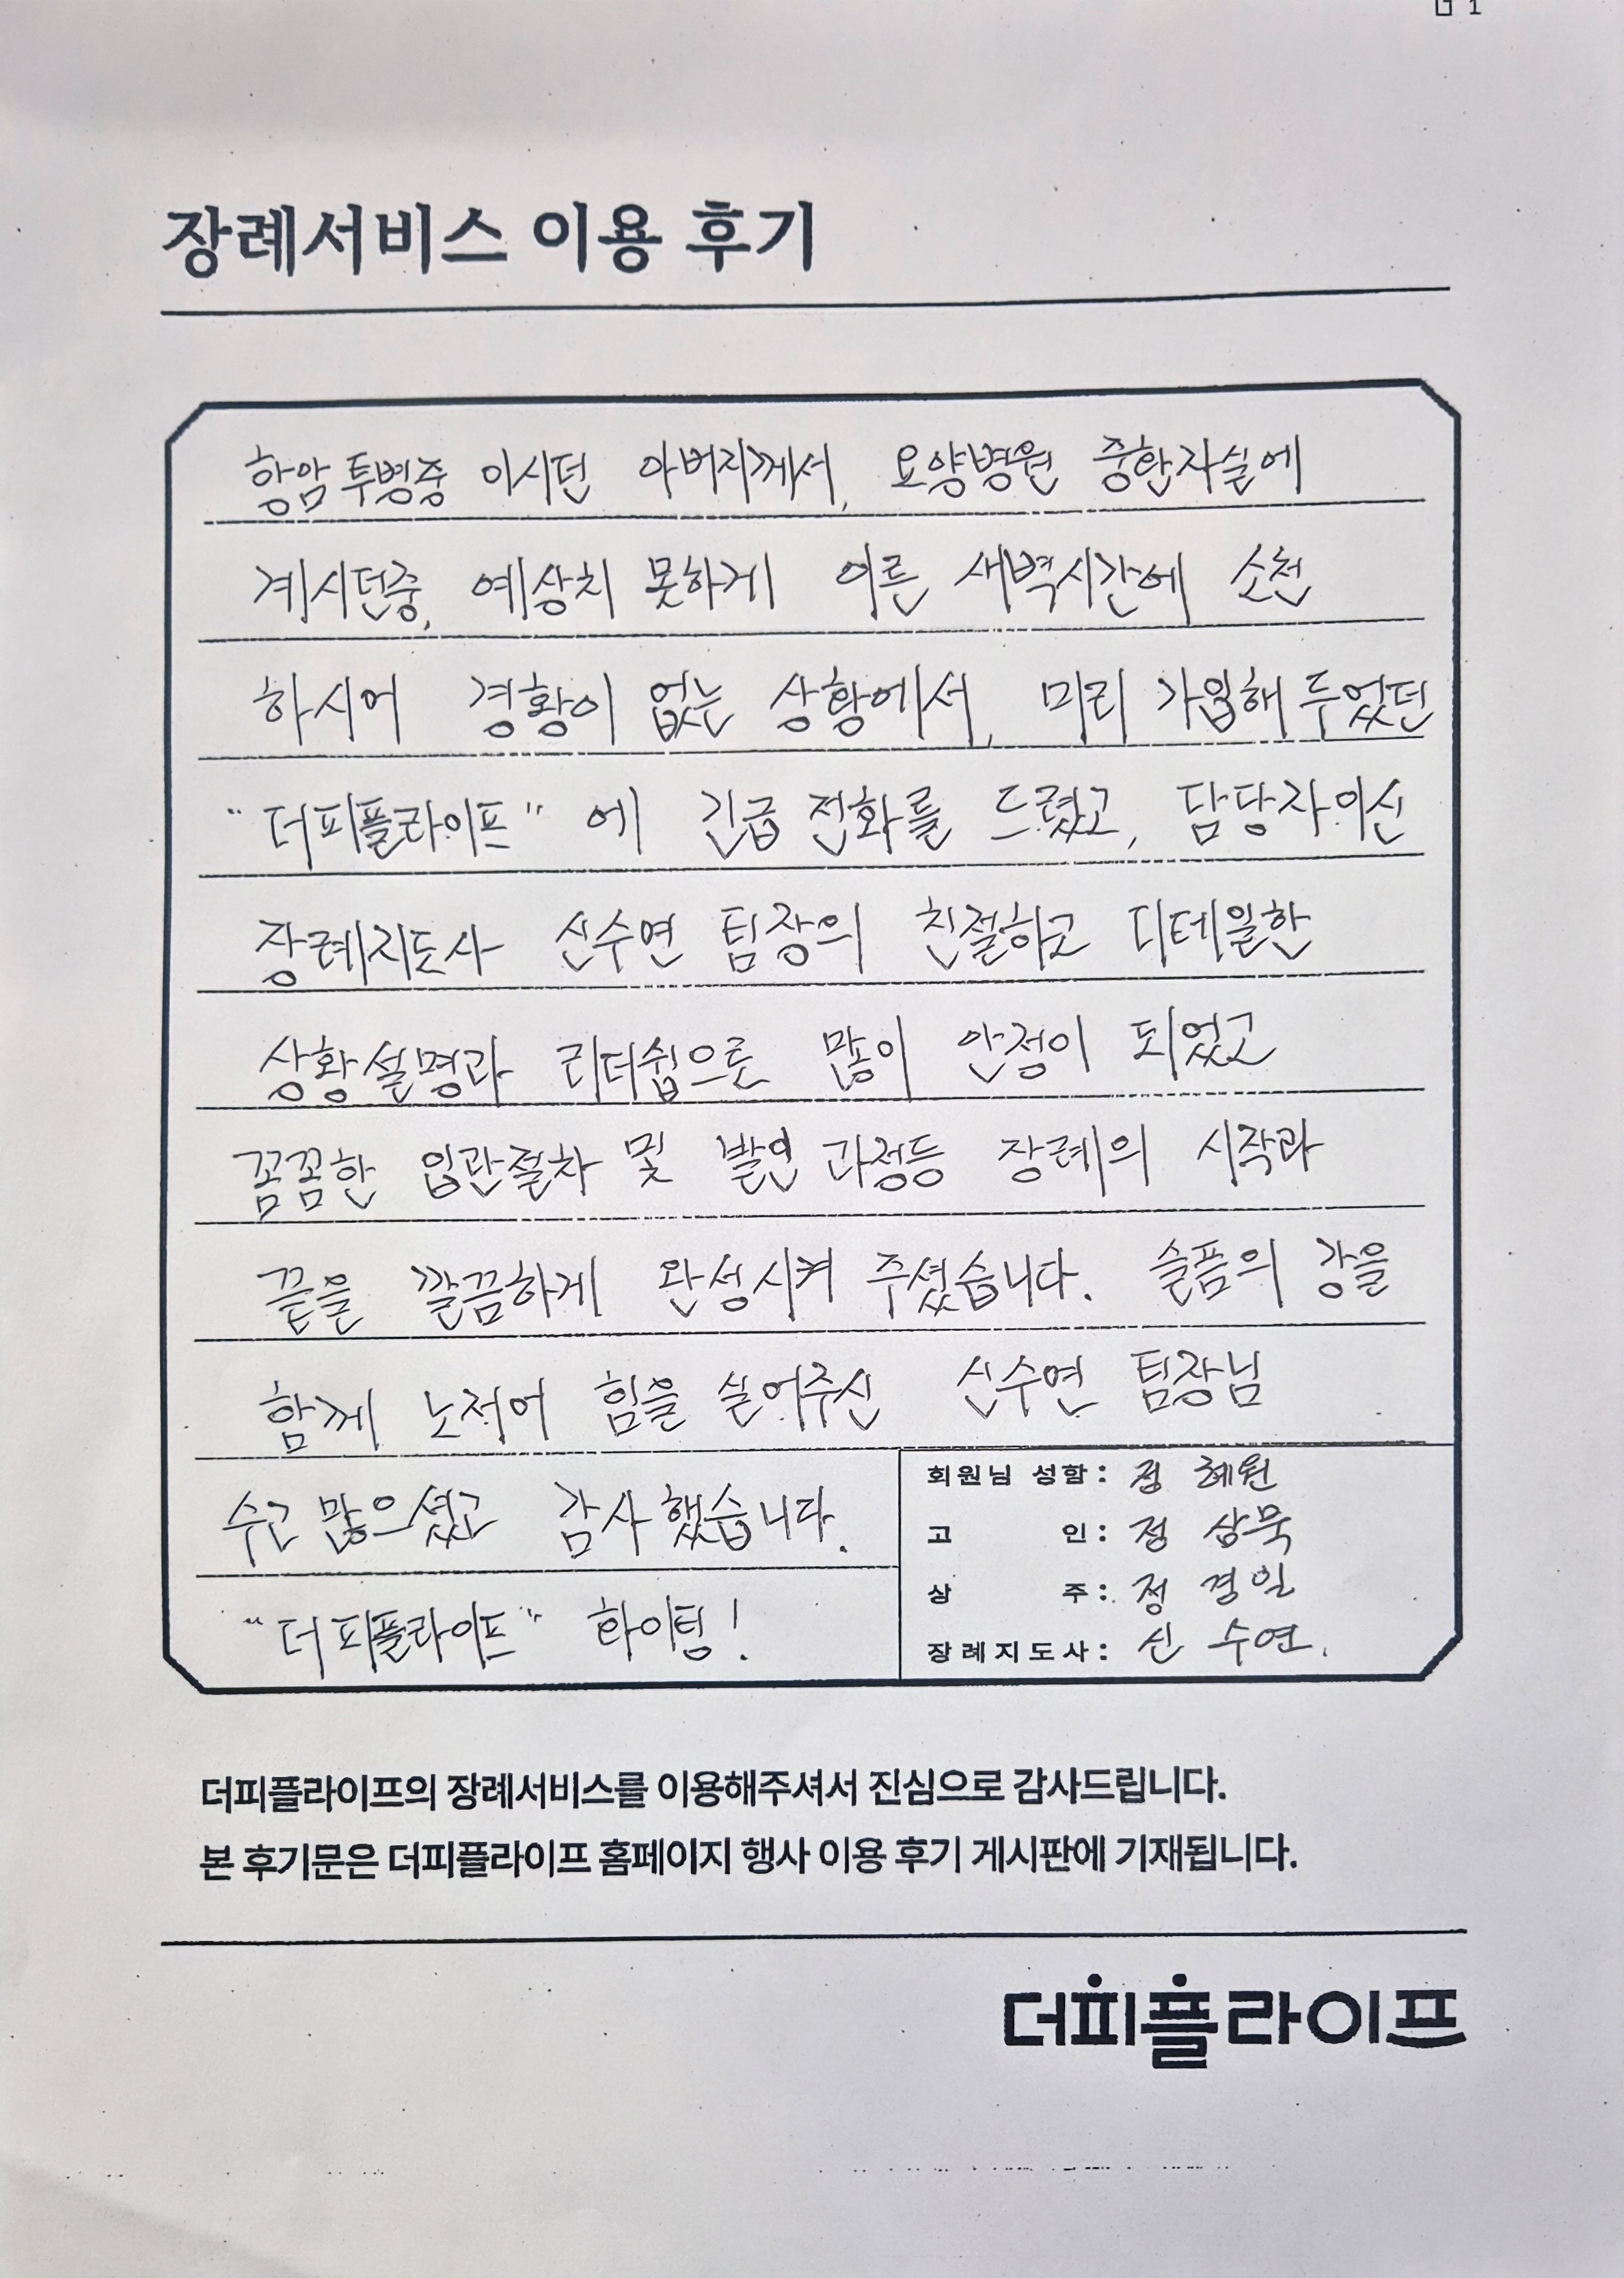 장례서비스 이용 후기
항암투병중 이시던 아버지께서, 요양병원 중환자실에
계시던중, 예상치 못하게 이른 새벽시간에 소천
하시어 경황이 없는 상황에서, 미리 가입해 두었던
"더피플라이프" 에 긴급 전화를 드렸고, 담당자이신
장례지도사 신수연 팀장의 친절하고 디테일한
상황설명과 리더쉽으로 많이 안정이 되었고
꼼꼼한 입관절차 및 발인 과정등 장례의 시작과
끝을 깔끔하게 완성시켜 주셨습니다. 슬픔의 강을
함께 노저어 힘을 실어주신 신수연 팀장님
수고 많으셨고 감사했습니다.
"더피플라이프" 화이팅!
회원님 성함: 정 혜원
고 인: 정 상묵
상 주: 정 경일
장례지도사: 신 수연.
더피플라이프의 장례서비스를 이용해주셔서 진심으로 감사드립니다.
본 후기문은 더피플라이프 홈페이지 행사 이용 후기 게시판에 기재됩니다.
더피플라이프